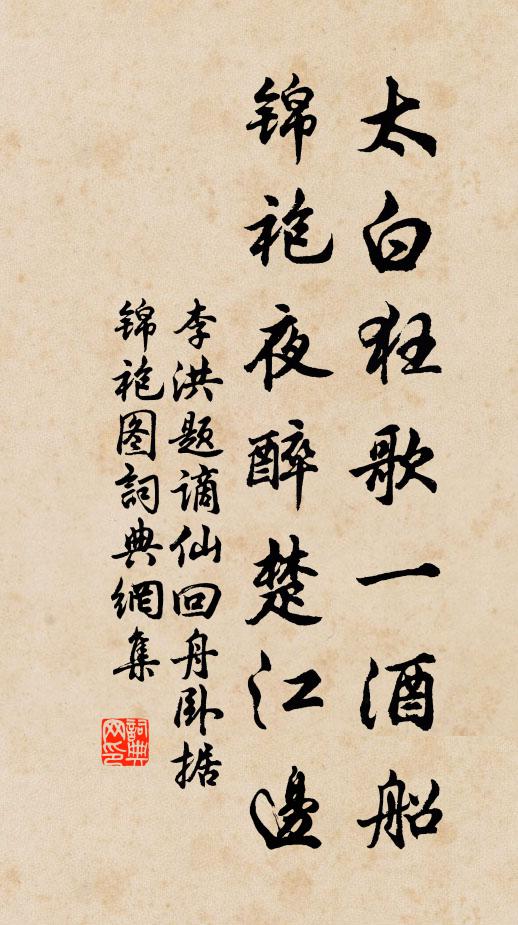 太白狂歌一酒船
锦袍夜醉楚江邊
李洪题谪仙回舟卧据
锦袍图詞典網集
詞典網印